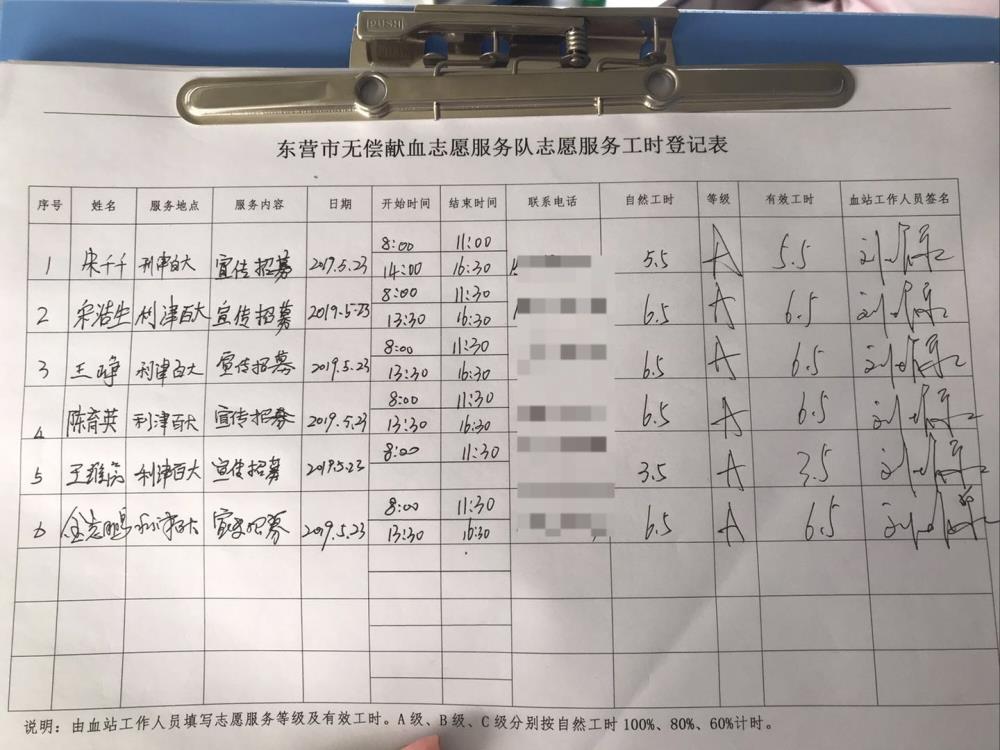 PUSH
东营市无偿献血志愿服务队志愿服务工时登记表
序号 姓名 服务地点 服务内容 日期 开始时间 结束时间 联系电话 自然工时 等级 有效工时 血站工作人员签名
8:00 11:00
1 宋千千 利津百大 宣传招募 2019.5.23 14:00 16:30 5.5 A 5.5
8:00 11:30
2 宋浩生 利津百大 宣传招募 2019.5.23 13:30 16:30 6.5 A 6.5
8:00 11:30
3 王峥 利津百大 宣传招募 2019.5.23 13:30 16:30 6.5 A 6.5
8:00 11:30
4 陈育英 利津百大 宣传招募 2019.5.23 13:30 16:30 6.5 A 6.5
8:00 11:30
5 利津百大 宣传招募 2019.5.23 3.5 A 3.5
8:00 11:30
6 利津百大 宣传招募 2019.5.23 13:30 16:30 6.5 A 6.5
说明：由血站工作人员填写志愿服务等级及有效工时。A级、B级、C级分别按自然工时100%、80%、60%计时。